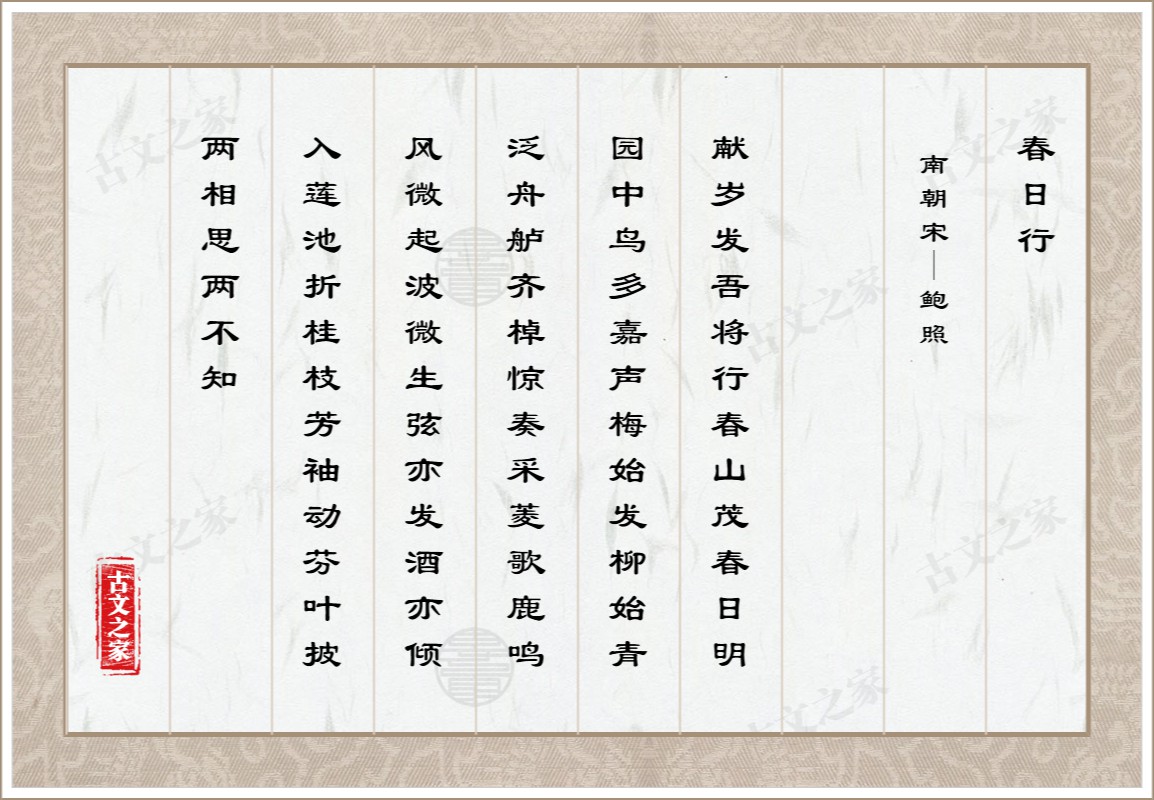 春日行
南朝宋—鲍照
献岁发吾将行春山茂春日明
园中鸟多嘉声梅始发柳始青
泛舟舻齐棹惊奏采菱歌鹿鸣
风微起波微生弦亦发酒亦倾
入莲池折桂枝芳袖动芬叶披
两相思两不知
古文之家